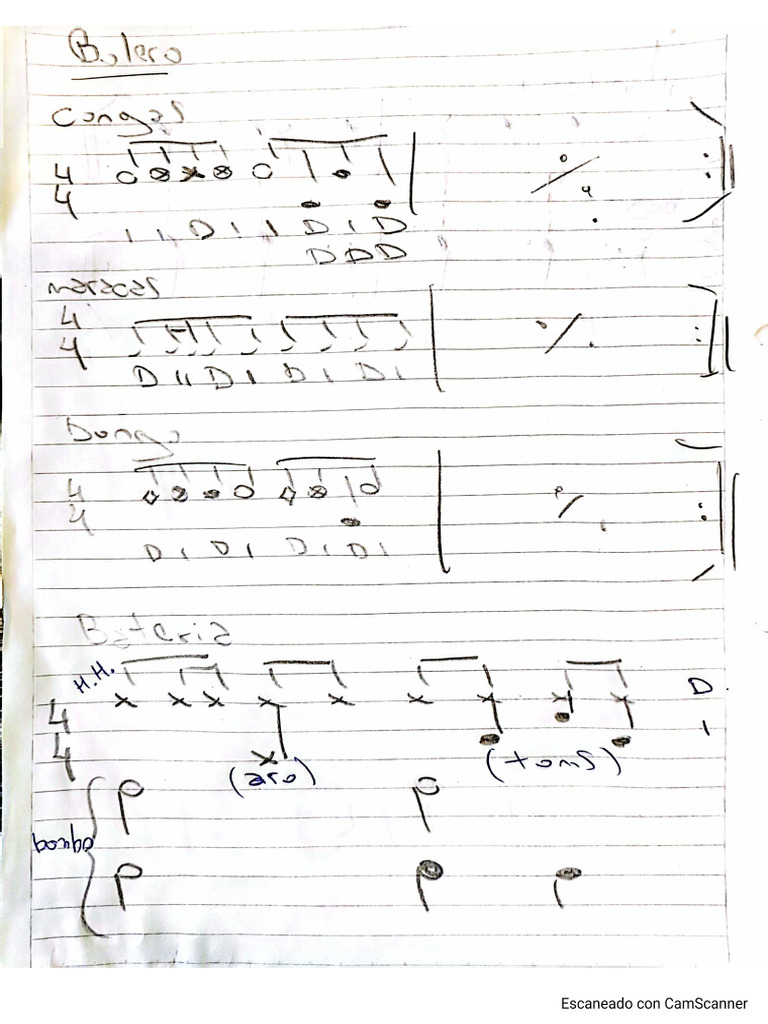 Bolero
Congas
4
4
I I D I I D I D
D D D
maracas
4
4
D I I D I D I D I
Bongo
4
4
D I D I D I D I
Bateria
H.H.
D
4
4
I
(aro) (toms)
bombo
Escaneado con CamScanner